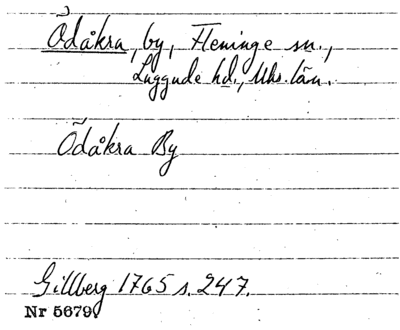 Ödåkra, by, Fleninge sn.,
Luggude hd., Mhs. län.
Ödåkra By
Gillberg 1765 s. 247.
Nr 5679